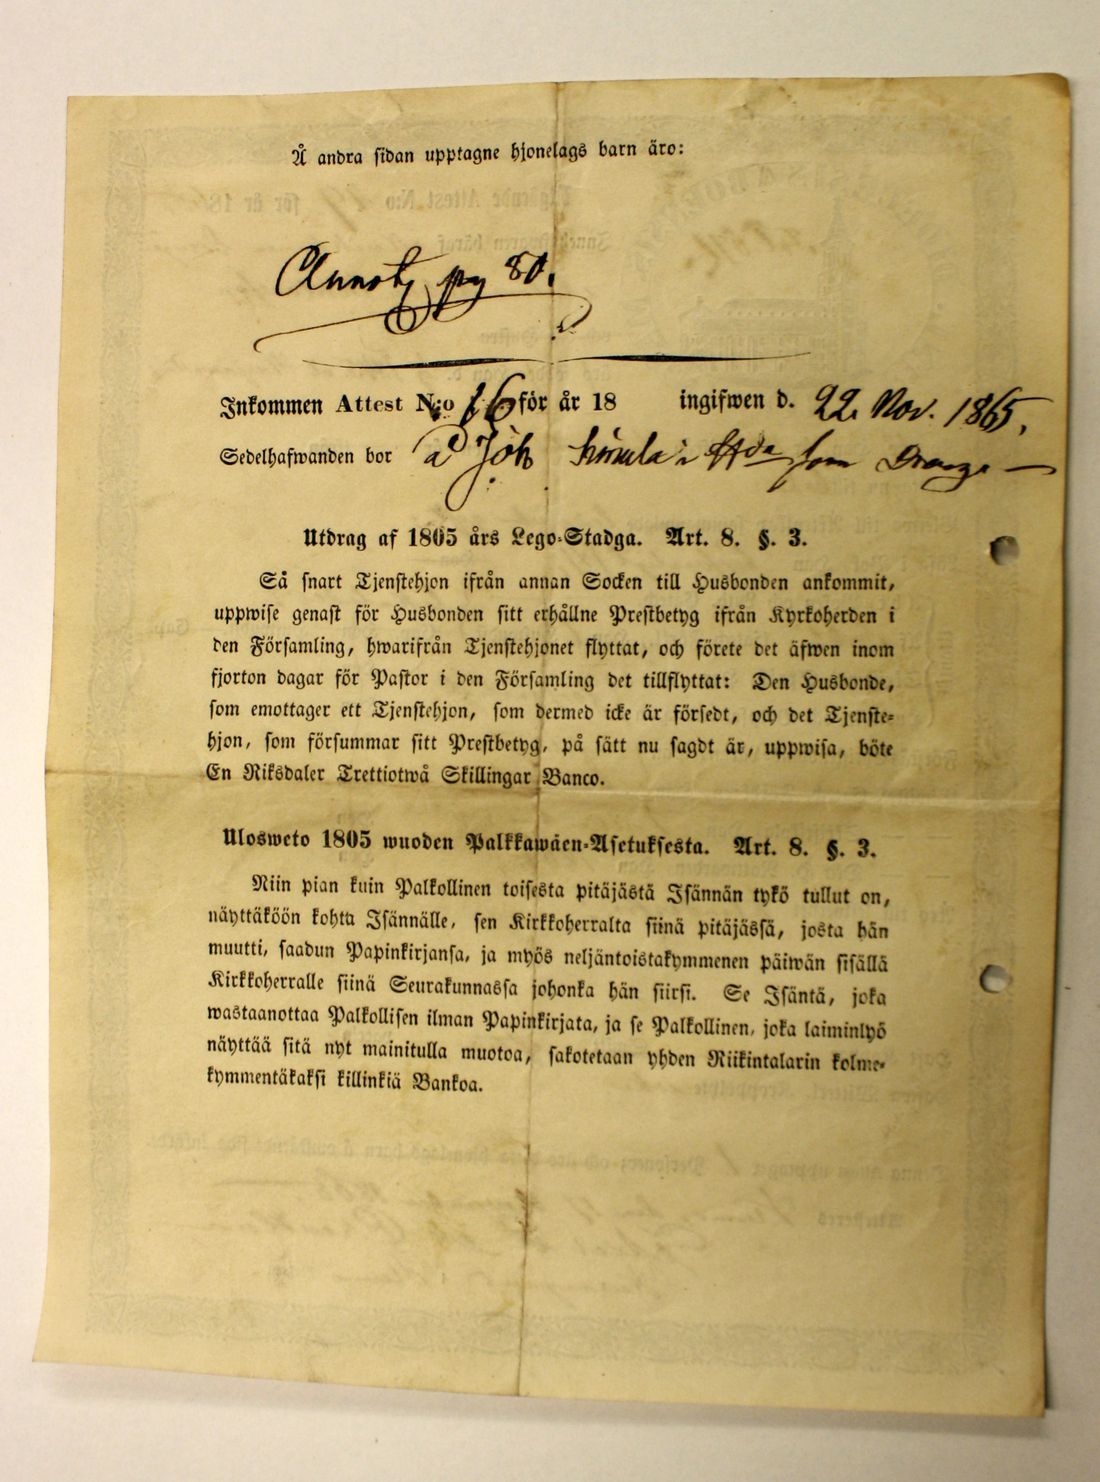 Å andra sidan upptagne hjonelags barn äro:
Annot. pag 80.
Inkommen Attest N:o 16 för år 18 ingifwen d. 22 Nov. 1865.
Sedelhafwanden bor å i som Dräng
Utdrag af 1805 års Lego-Stadga. Art. 8. §. 3.
Så snart Tjenstehjon ifrån annan Socken till Husbonden ankommit,
uppwise genast för Husbonden sitt erhållne Prestbetyg ifrån Kyrkoherden i
den Församling, hwarifrån Tjenstehjonet flyttat, och förete det äfwen inom
fjorton dagar för Pastor i den Församling det tillflyttat: Den Husbonde,
som emottager ett Tjenstehjon, som dermed icke är försedt, och det Tjenste-
hjon, som försummar sitt Prestbetyg, på sätt nu sagdt är, uppwisa, böte
En Riksdaler Trettiotwå Skillingar Banco.
Ulosweto 1805 wuoden Palkkawäen-Asetuksesta. Art. 8. §. 3.
Niin pian kuin Palkollinen toisesta pitäjästä Isännän tykö tullut on,
näyttäköön kohta Isännälle, sen Kirkkoherralta siinä pitäjässä, josta hän
muutti, saadun Papinkirjansa, ja myös neljäntoistakymmenen päiwän sisällä
Kirkkoherralle siinä Seurakunnassa johonka hän siirsi. Se Isäntä, joka
wastaanottaa Palkollisen ilman Papinkirjata, ja se Palkollinen, joka laiminlyö
näyttää sitä nyt mainitulla muotoa, sakotetaan yhden Riikintalarin kolme-
kymmentäkaksi killinkiä Bankoa.